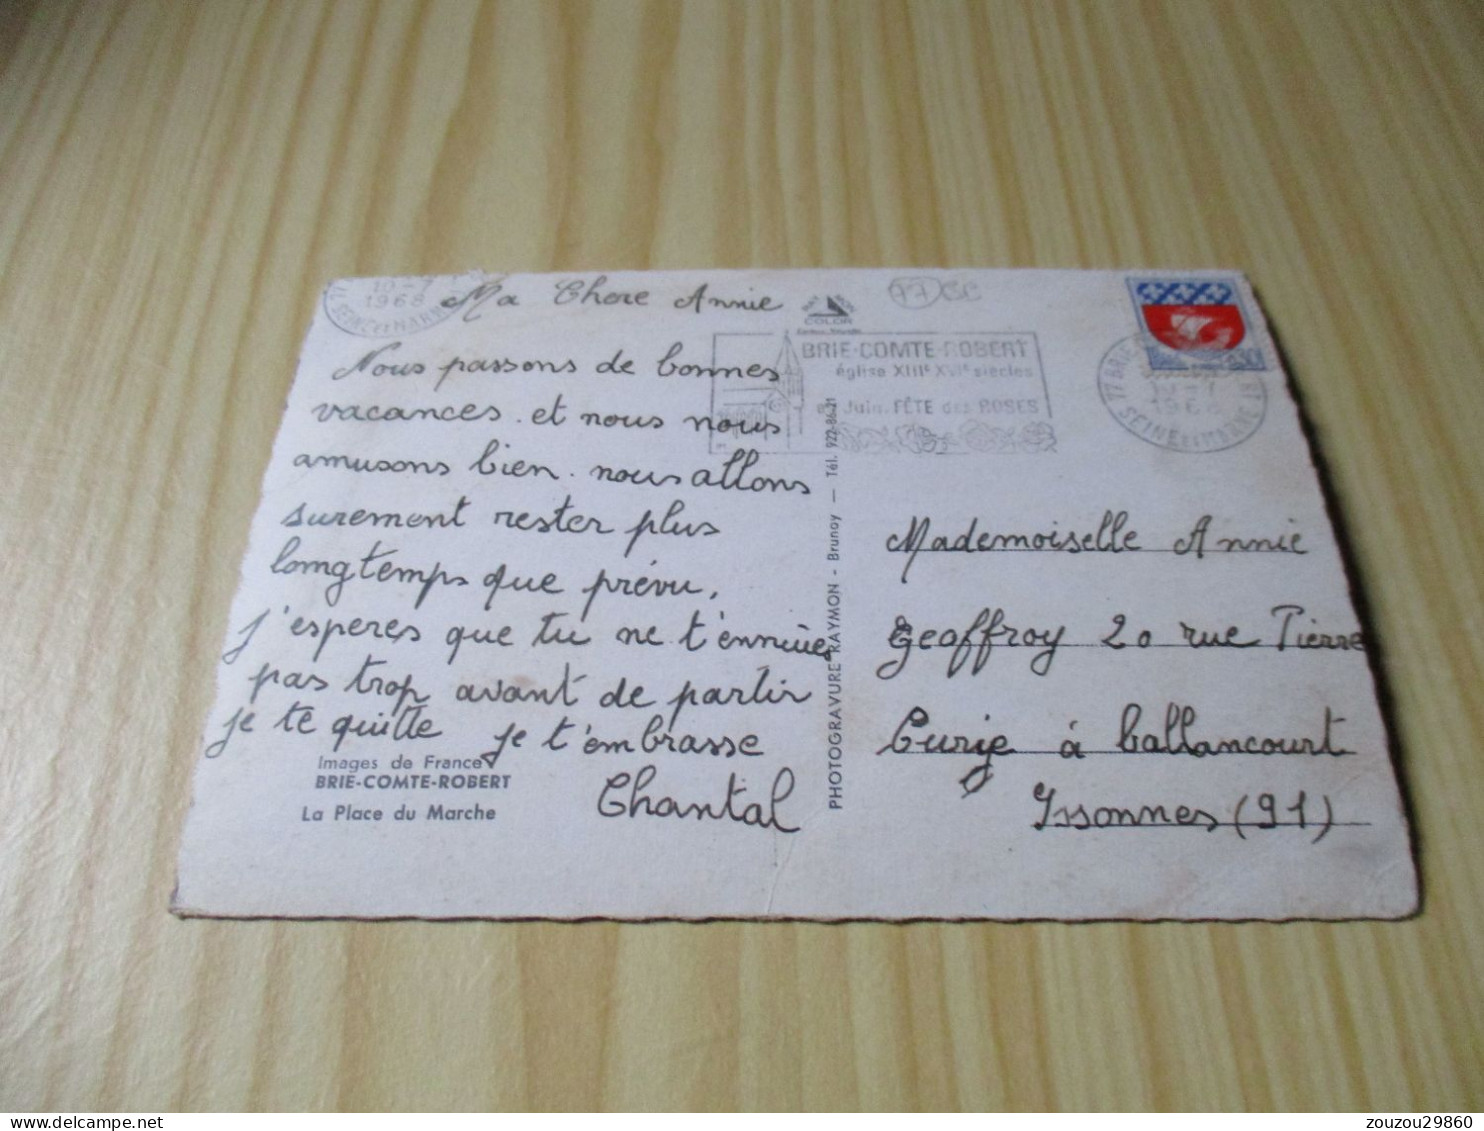 10-7
1968
SEINE ET MARNE
Ma Chere Annie
Nous passons de bonnes
vacances et nous nous
amusons bien. nous allons
surement rester plus
longtemps que prévu,
j'esperes que tu ne t'ennuies
pas trop avant de partir
je te quitte je t'embrasse
Chantal
Images de France
BRIE-COMTE-ROBERT
La Place du Marche
COLOR
PHOTOGRAVURE RAYMON - Brunoy — Tél. 922-86-21
77 CC
BRIE-COMTE-ROBERT
église XIIIe XVIe siècles
Juin. FÊTE des ROSES
0,30
77 BRIE
1968
SEINE ET MARNE
Mademoiselle Annie
Geoffroy 20 rue Pierre
Curie à ballancourt
Issonnes (91)
zouzou29860